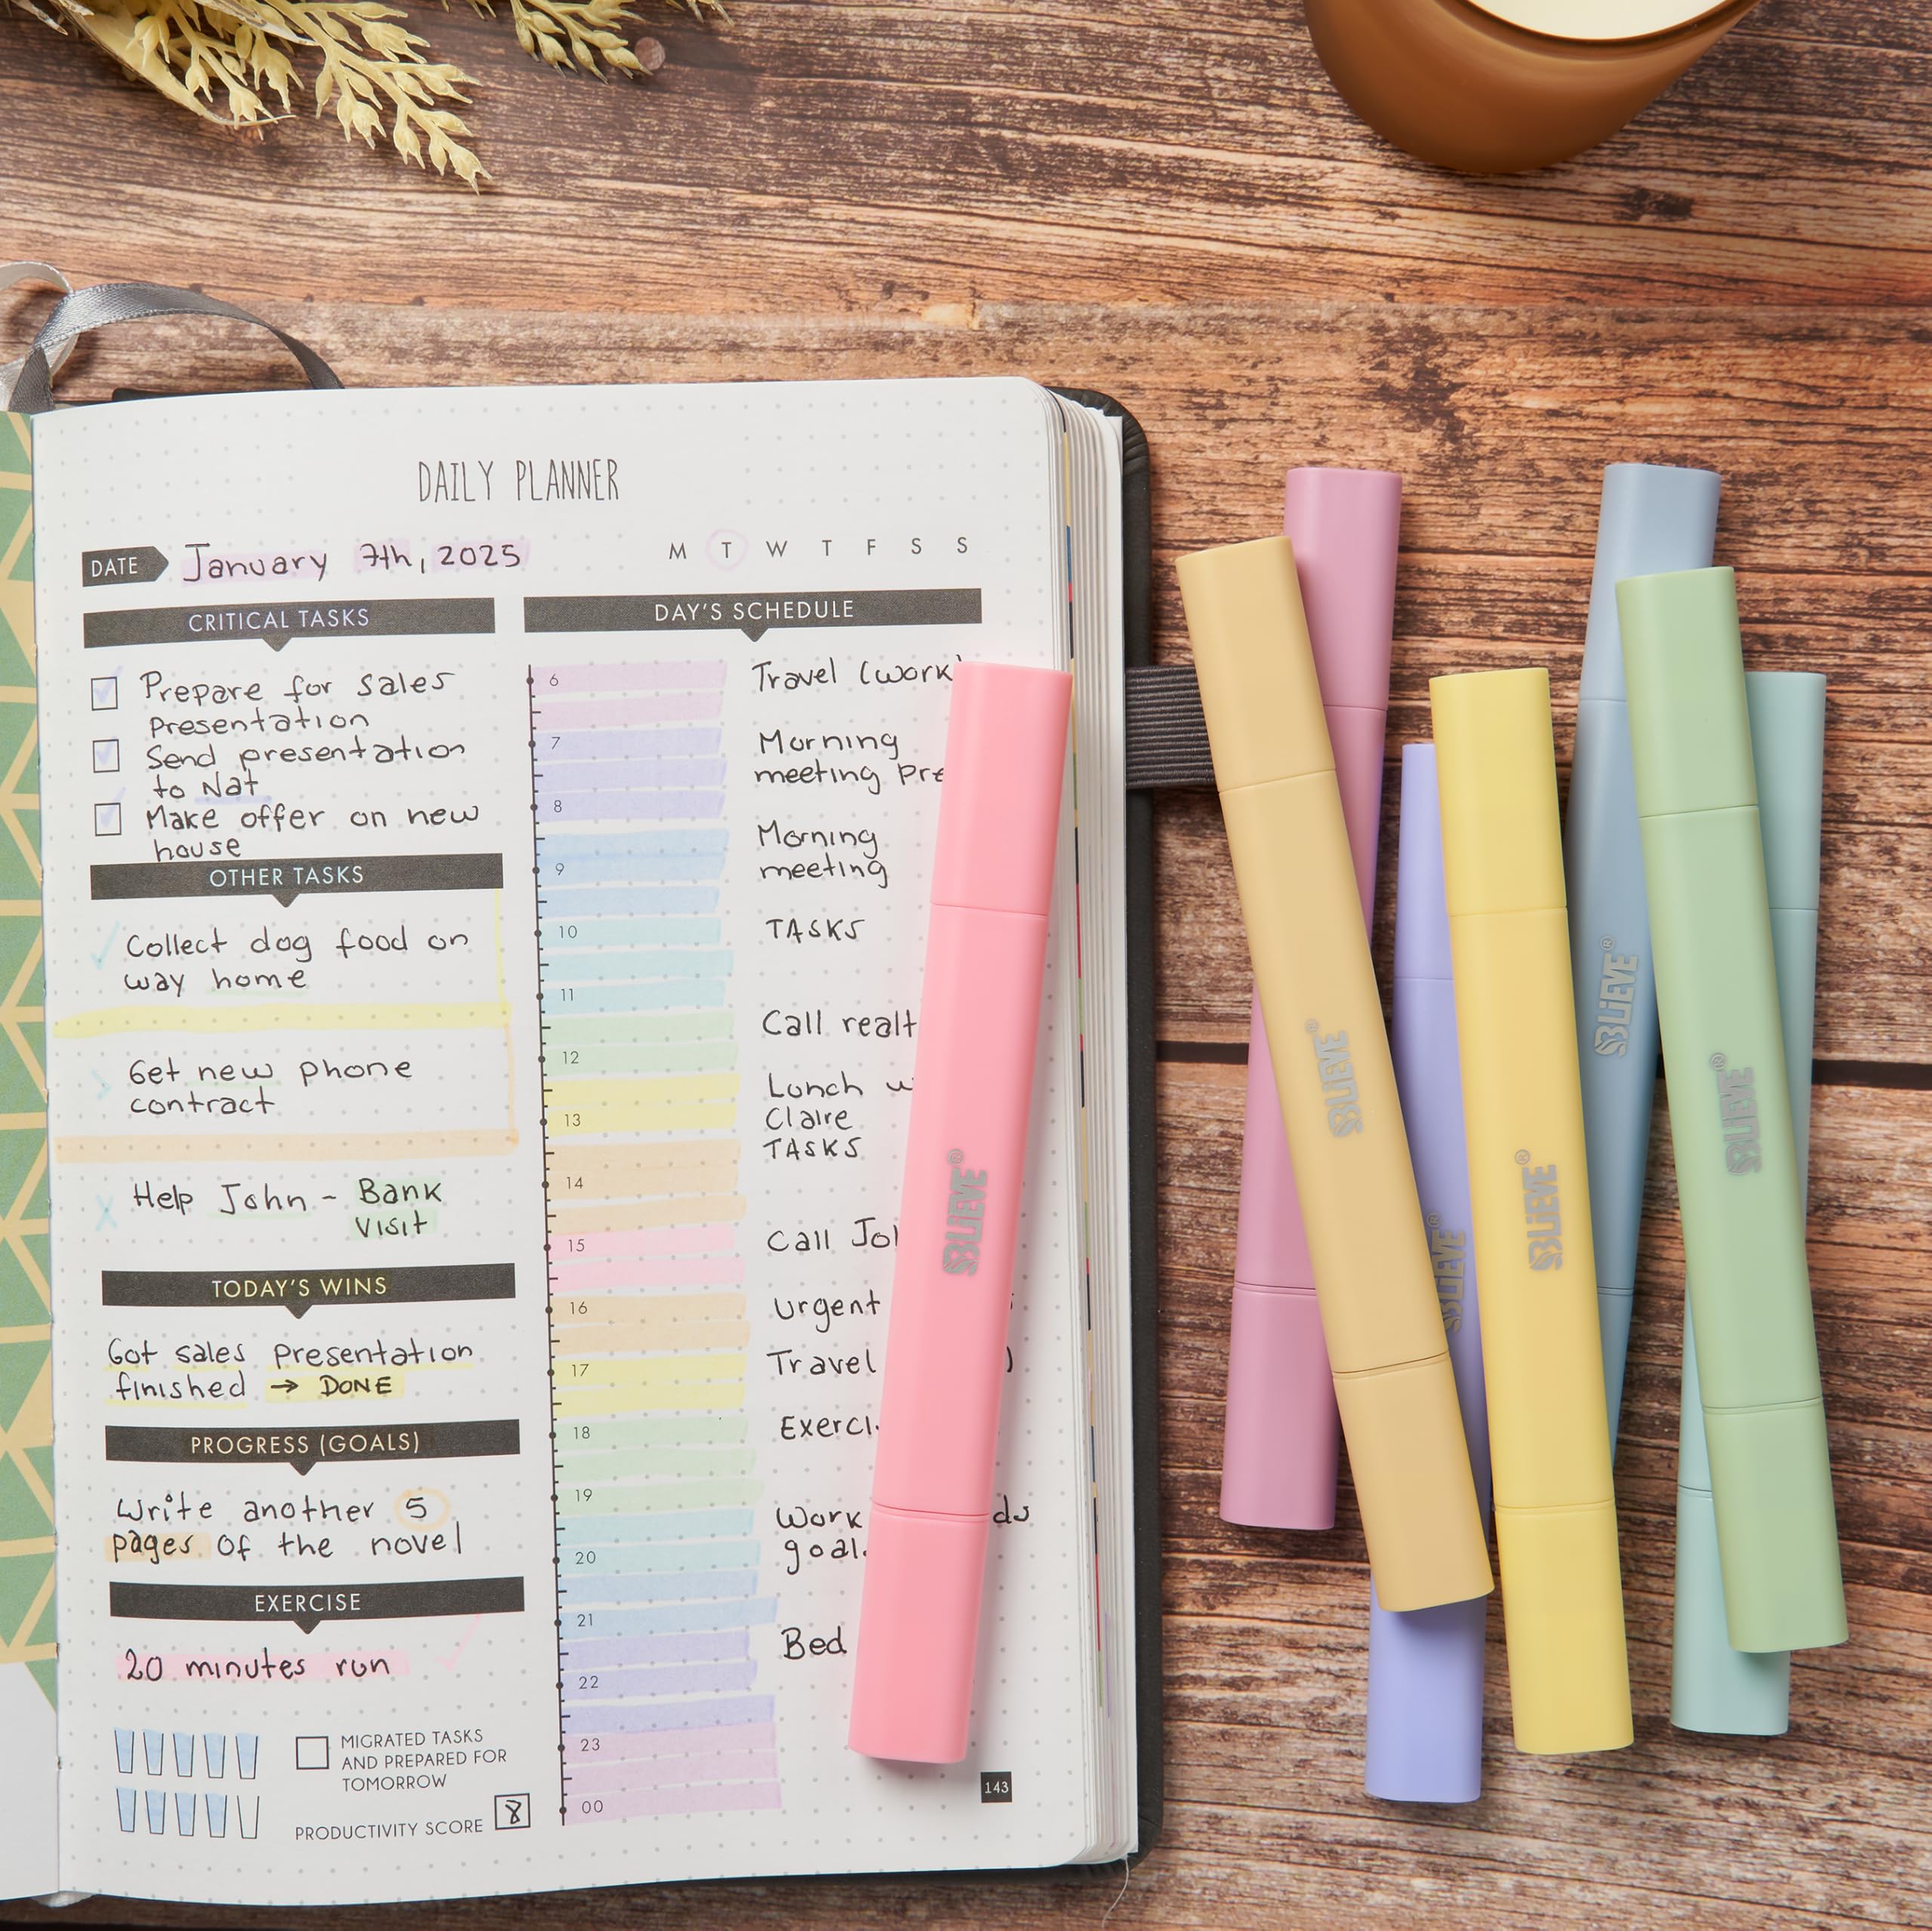 DAILY PLANNER
DATE January 7th, 2025
M T W T F S S
CRITICAL TASKS
Prepare for sales
presentation
Send presentation
to Nat
Make offer on new
house
OTHER TASKS
Collect dog food on
way home
Get new phone
contract
Help John - Bank
visit
TODAY'S WINS
Got sales presentation
finished → DONE
PROGRESS (GOALS)
Write another 5
pages of the novel
EXERCISE
20 minutes run
MIGRATED TASKS
AND PREPARED FOR
TOMORROW
PRODUCTIVITY SCORE 8
DAY'S SCHEDULE
6 Travel (work)
7 Morning
meeting
8
Morning
9 meeting
10 TASKS
11
Call
12
Lunch
13 Claire
TASKS
14
15 Call
16 Urgent
17 Travel
18
19
Work
20
21
Bed
22
23
00
143
BLIEVE®
BLIEVE®
BLIEVE®
BLIEVE®
BLIEVE®
BLIEVE®